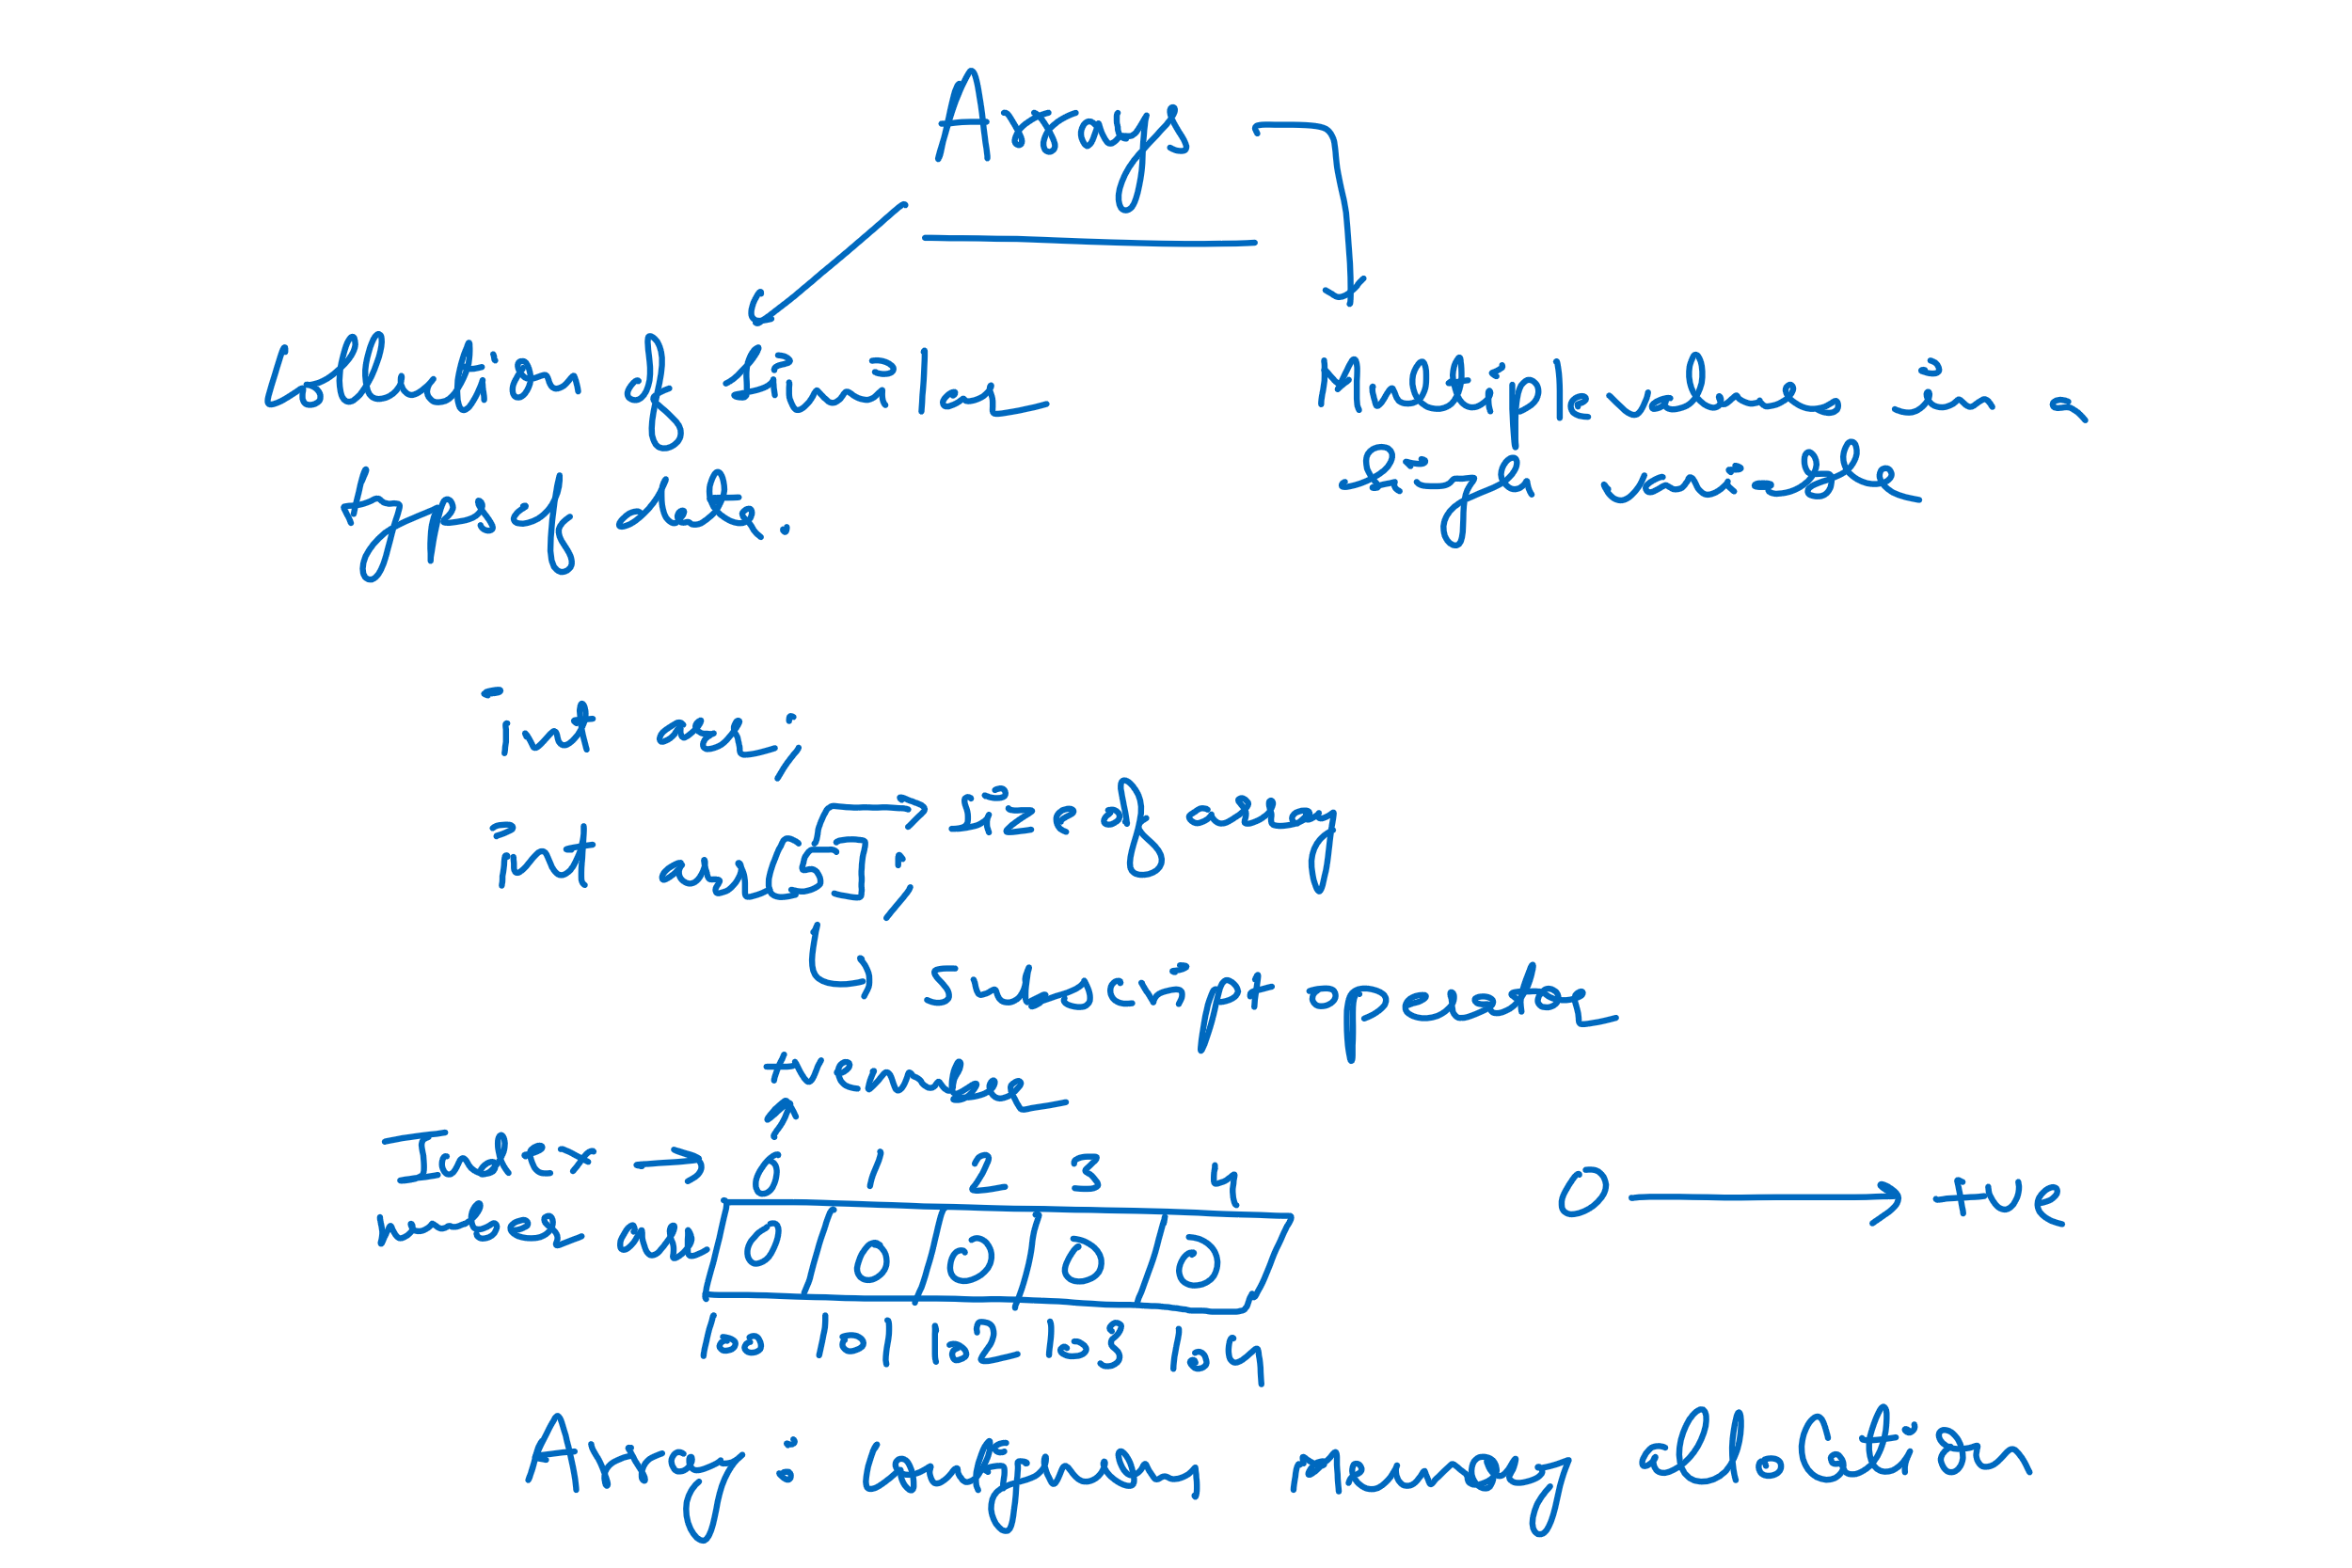 Arrays
Collection of similar
type of ele.
Multiple values in a
single variable
int arr;
int arr[5]; → size of array
subscript operator
+ve number
Index → 0 1 2 3 4
memory 0 0 0 0 0
100 101 102 103 104
0 → +ve
Array is contiguous memory allocation